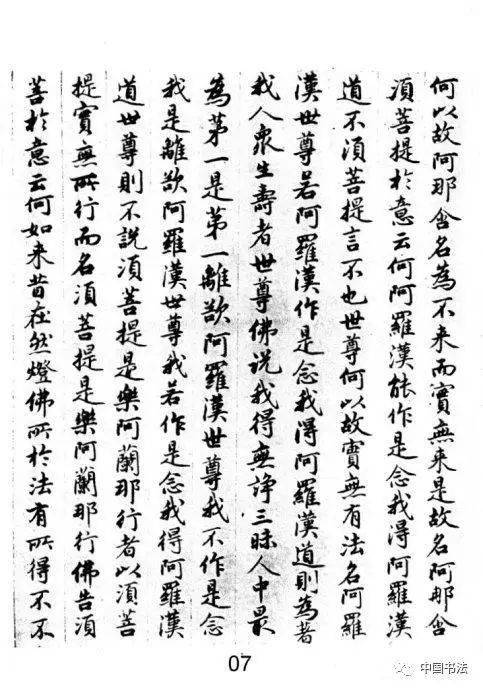 何以故阿那含名為不来而實無来是故名阿那含
須菩提於意云何阿羅漢能作是念我得阿羅漢
道不須菩提言不也世尊何以故實無有法名阿羅
漢世尊若阿羅漢作是念我得阿羅漢道則為著
我人衆生壽者世尊佛说我得無諍三昧人中最
為苐一是苐一離欲阿羅漢世尊我不作是念
我是離欲阿羅漢世尊我若作是念我得阿羅漢
道世尊則不說須菩提是樂阿蘭那行者以須菩
提實無所行而名須菩提是樂阿蘭那行佛告須
菩於意云何如来昔在然燈佛所於法有所得不不
07
中国书法